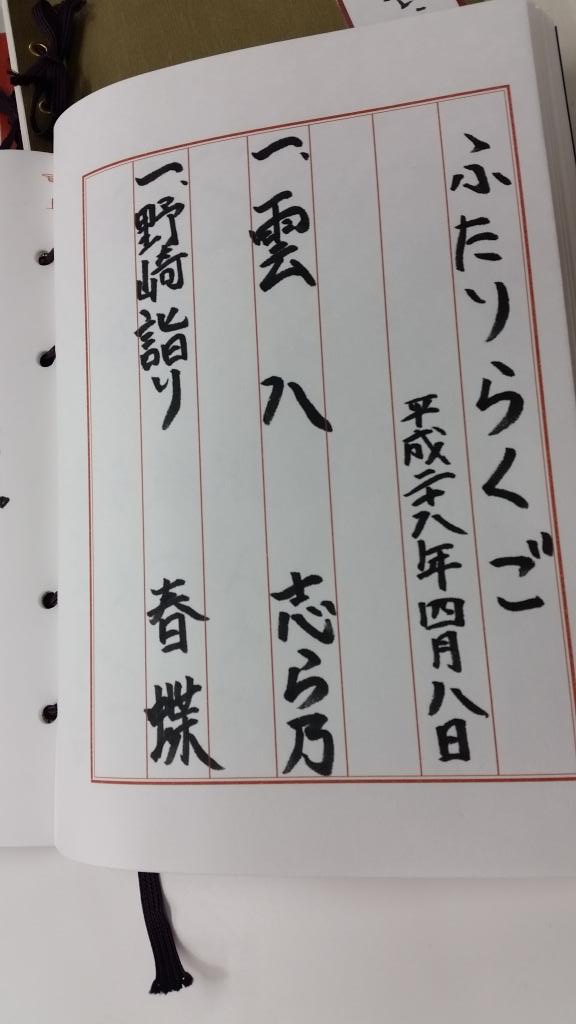 ふたりらくご
平成二十八年四月八日
一、雲八 志ら乃
一、野崎詣り 春蝶